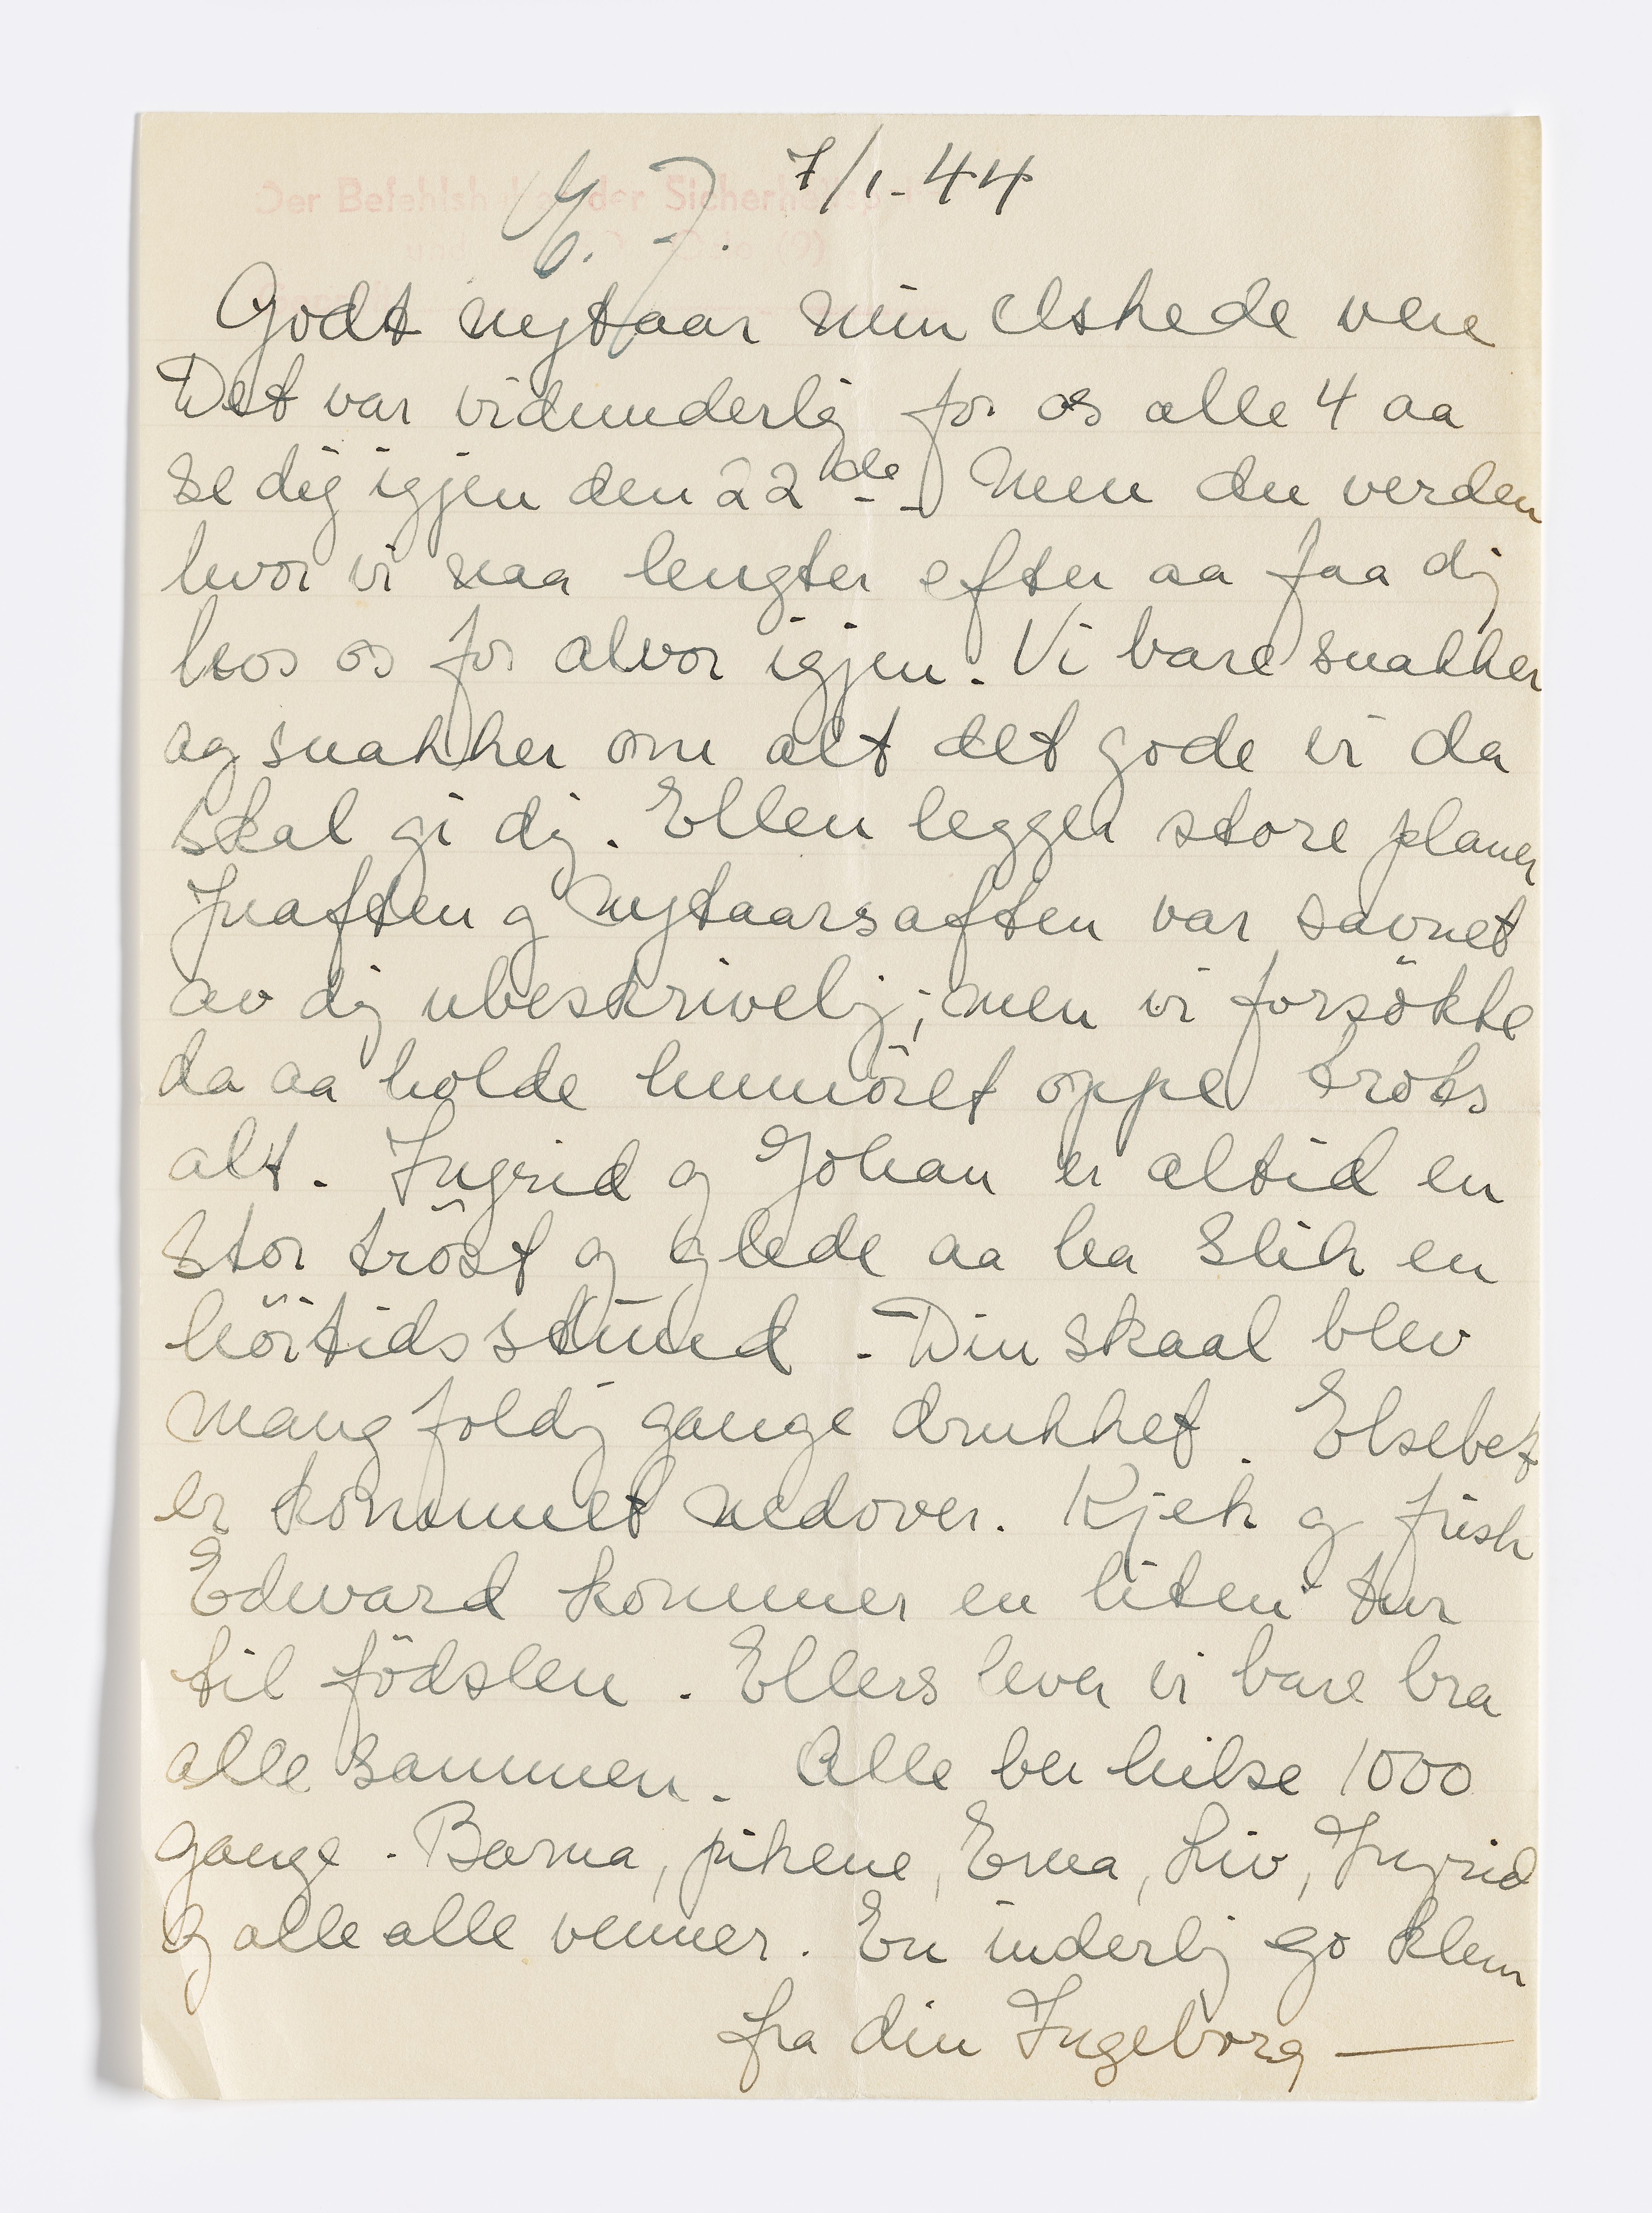 7/1-44
Der Befehlshaber der Sicherheitspol
und
Godt nytaar min elskede ven
Det var vidunderlig for os alle 4 aa
se dig igjen den 22de. Men du verden
hvor vi naa lengter efter aa faa dig
hos os for alvor igjen. Vi bare snakker
og snakker om alt det gode vi da
skal gi dig. Ellen legger store planer
Julaften og Nytaarsaften var savnet
av dig ubeskrivelig; men vi forsökte
da aa holde humöret oppe trots
alt. Ingrid og Johan er altid en
stor tröst og glede aa ha slik en
höitidsstund. Din skaal blev
mangfoldig gange drukket. Elsebet
er kommet nedover. Kjek og frisk
Edward kommer en liten tur
til födslen. Ellers lever vi bare bra
alle sammen. Alle ber hilse 1000
gange. Barna, pikene, Erna, Liv, Ingrid
og alle alle venner. En inderlig go klem
fra din Ingeborg —